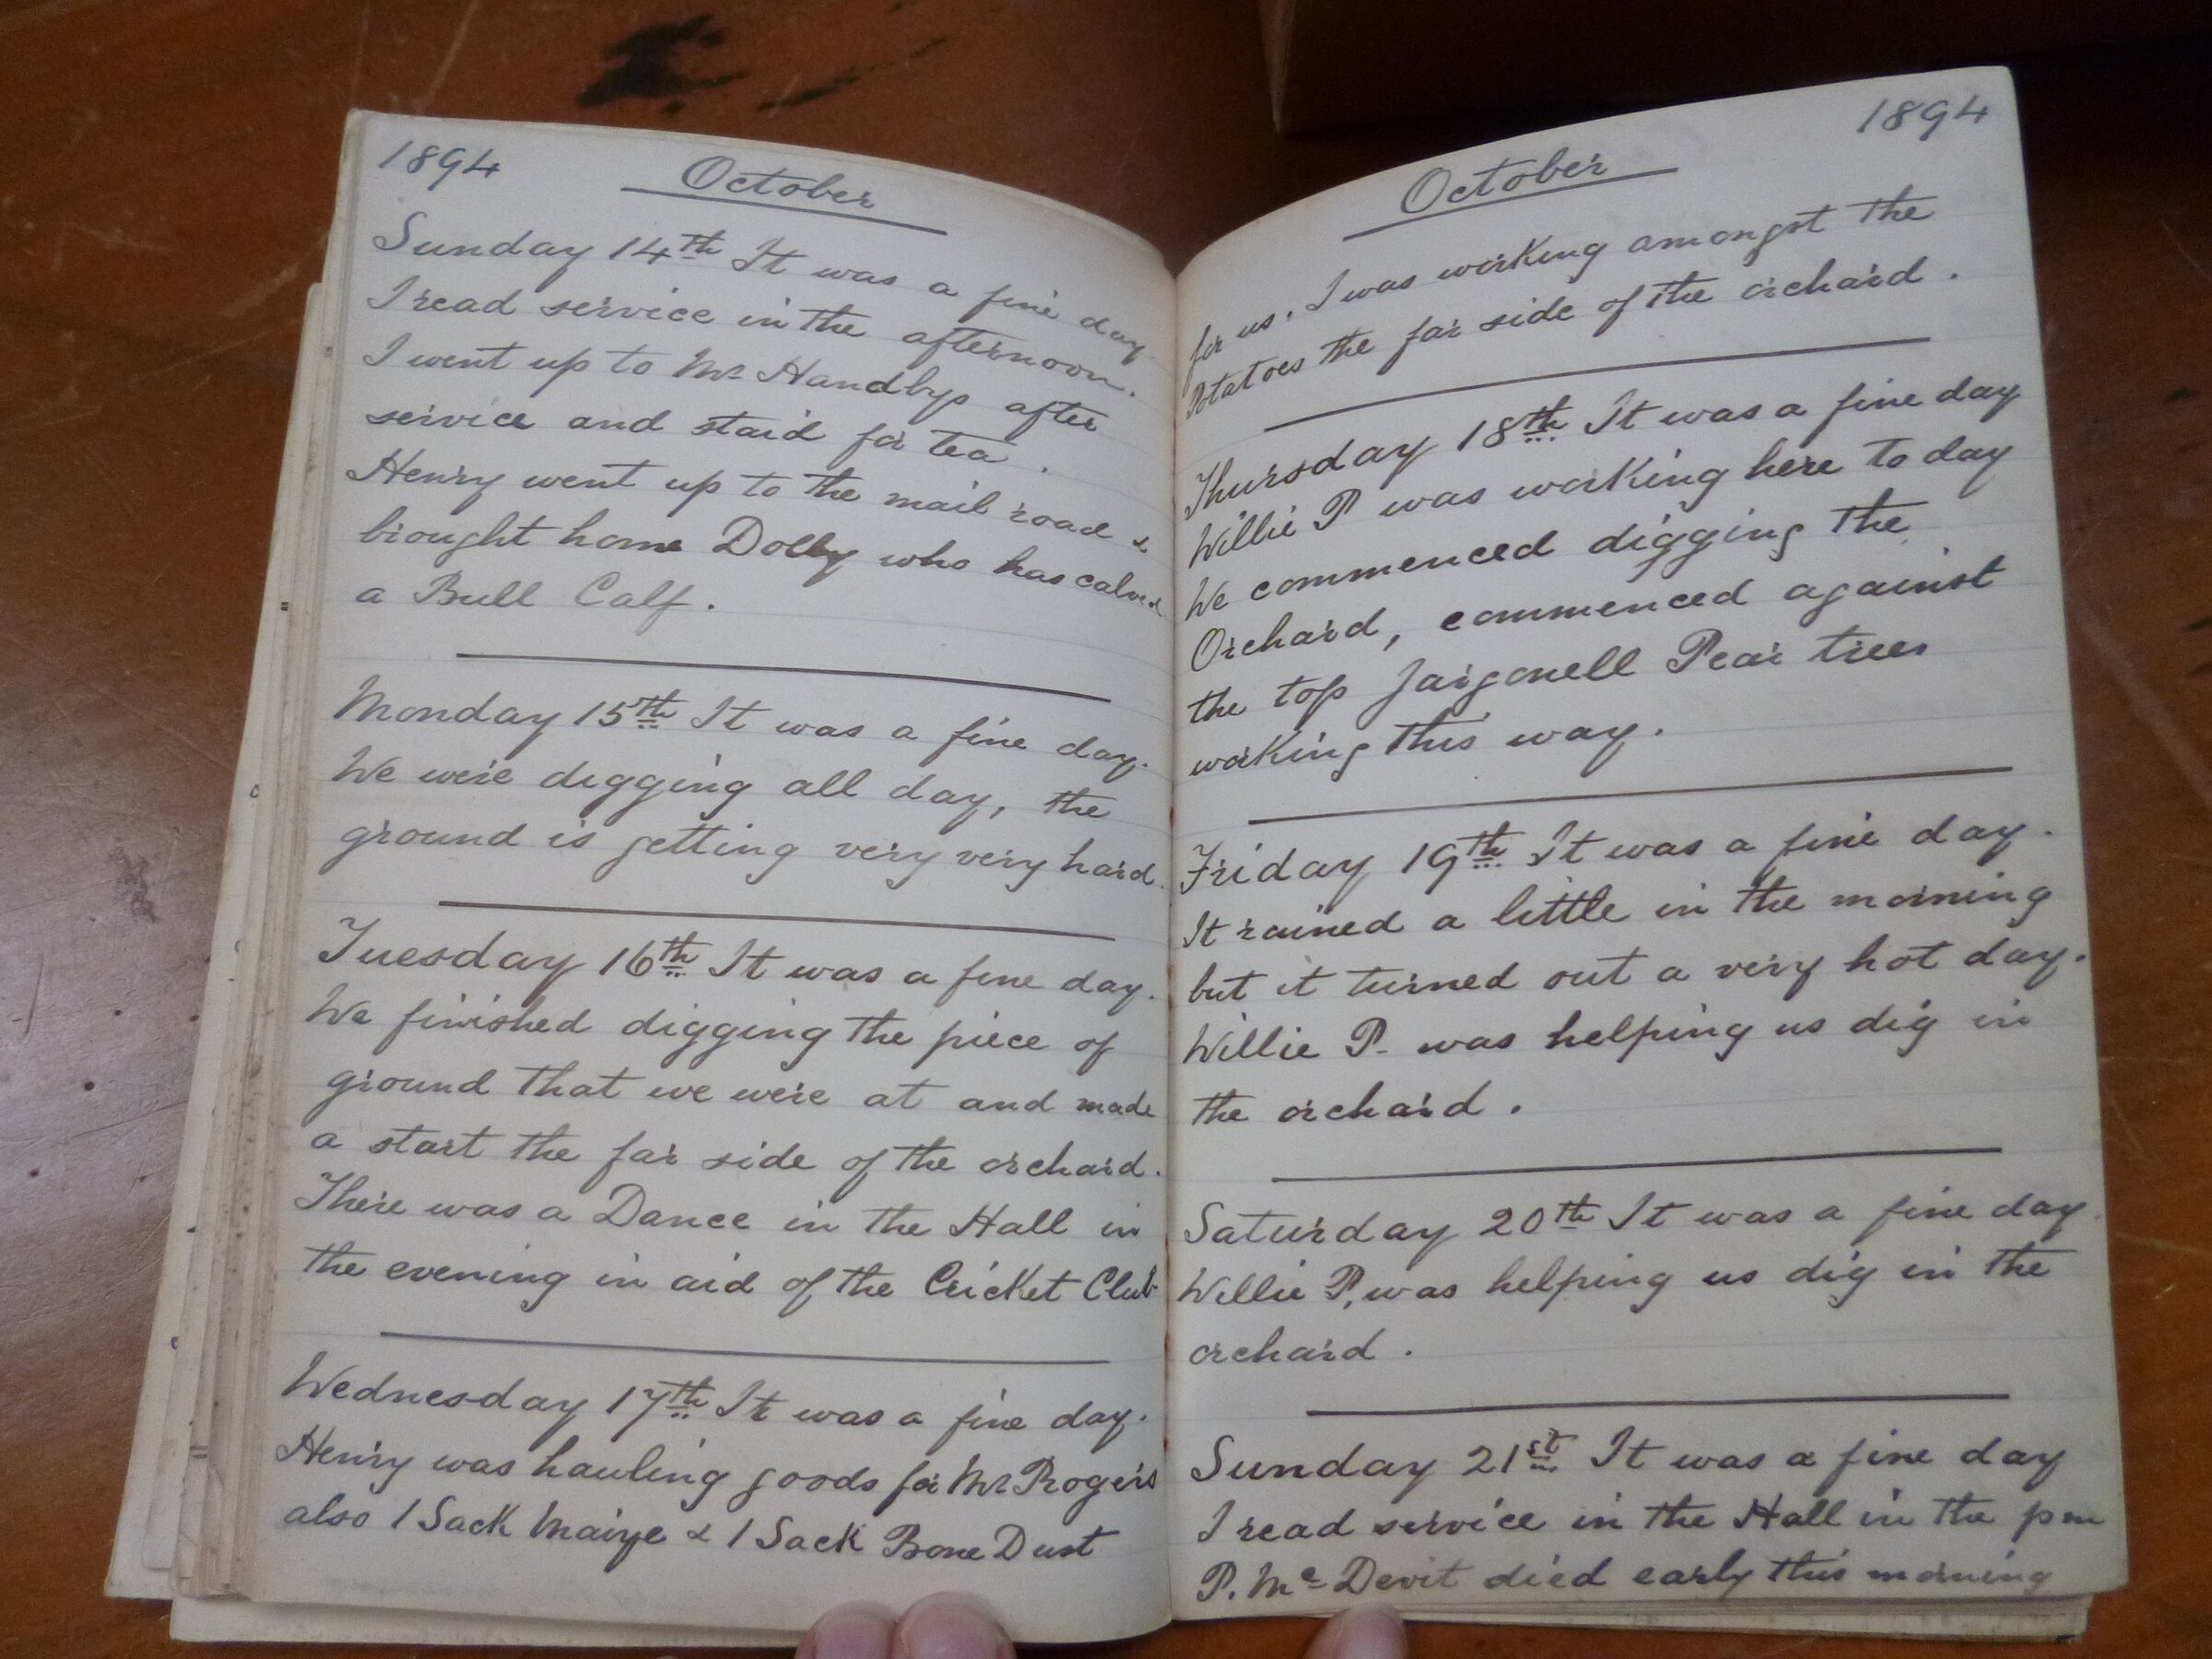 1894
October
Sunday 14th It was a fine day.
I read service in the afternoon.
I went up to Mr Handbys after
service and staid for tea.
Henry went up to the mail road &
brought home Dolly who has calved
a Bull Calf.
Monday 15th It was a fine day.
We were digging all day, the
ground is getting very very hard.
Tuesday 16th It was a fine day.
We finished digging the piece of
ground that we were at and made
a start the far side of the orchard.
There was a Dance in the Hall in
the evening in aid of the Cricket Club
Wednesday 17th It was a fine day.
Henry was hauling goods for Mr Rogers
also 1 Sack Maize & 1 Sack Bone Dust
1894
October
for us. I was working amongst the
Potatoes the far side of the orchard.
Thursday 18th It was a fine day
Willie P was working here to day
We commenced digging the
Orchard, commenced against
the top Jargonell Pear trees
working this way.
Friday 19th It was a fine day.
It rained a little in the morning
but it turned out a very hot day.
Willie P. was helping us dig in
the orchard.
Saturday 20th It was a fine day
Willie P. was helping us dig in the
orchard.
Sunday 21st It was a fine day
I read service in the Hall in the pm
P. Mc Devit died early this morning